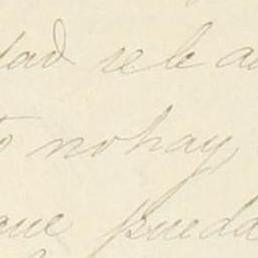 dad se le a
to no hay
que pueda